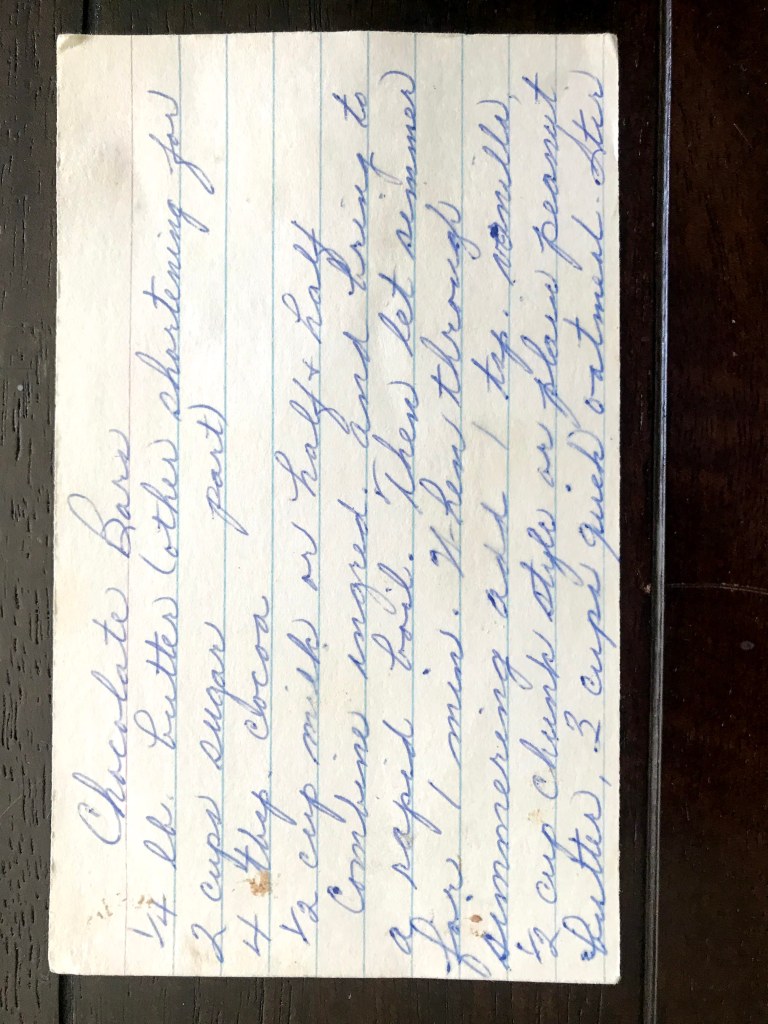 Chocolate Bars
1/4 lb. butter (other shortening for
2 cups sugar part)
4 tbsp. cocoa
1/2 cup milk or half & half
Combine ingred. and bring to
a rapid boil. Then let simmer
for 1 min. When through
simmering add 1 tsp. vanilla,
1/2 cup chunk style or plain peanut
butter, 3 cups quick oatmeal. Stir